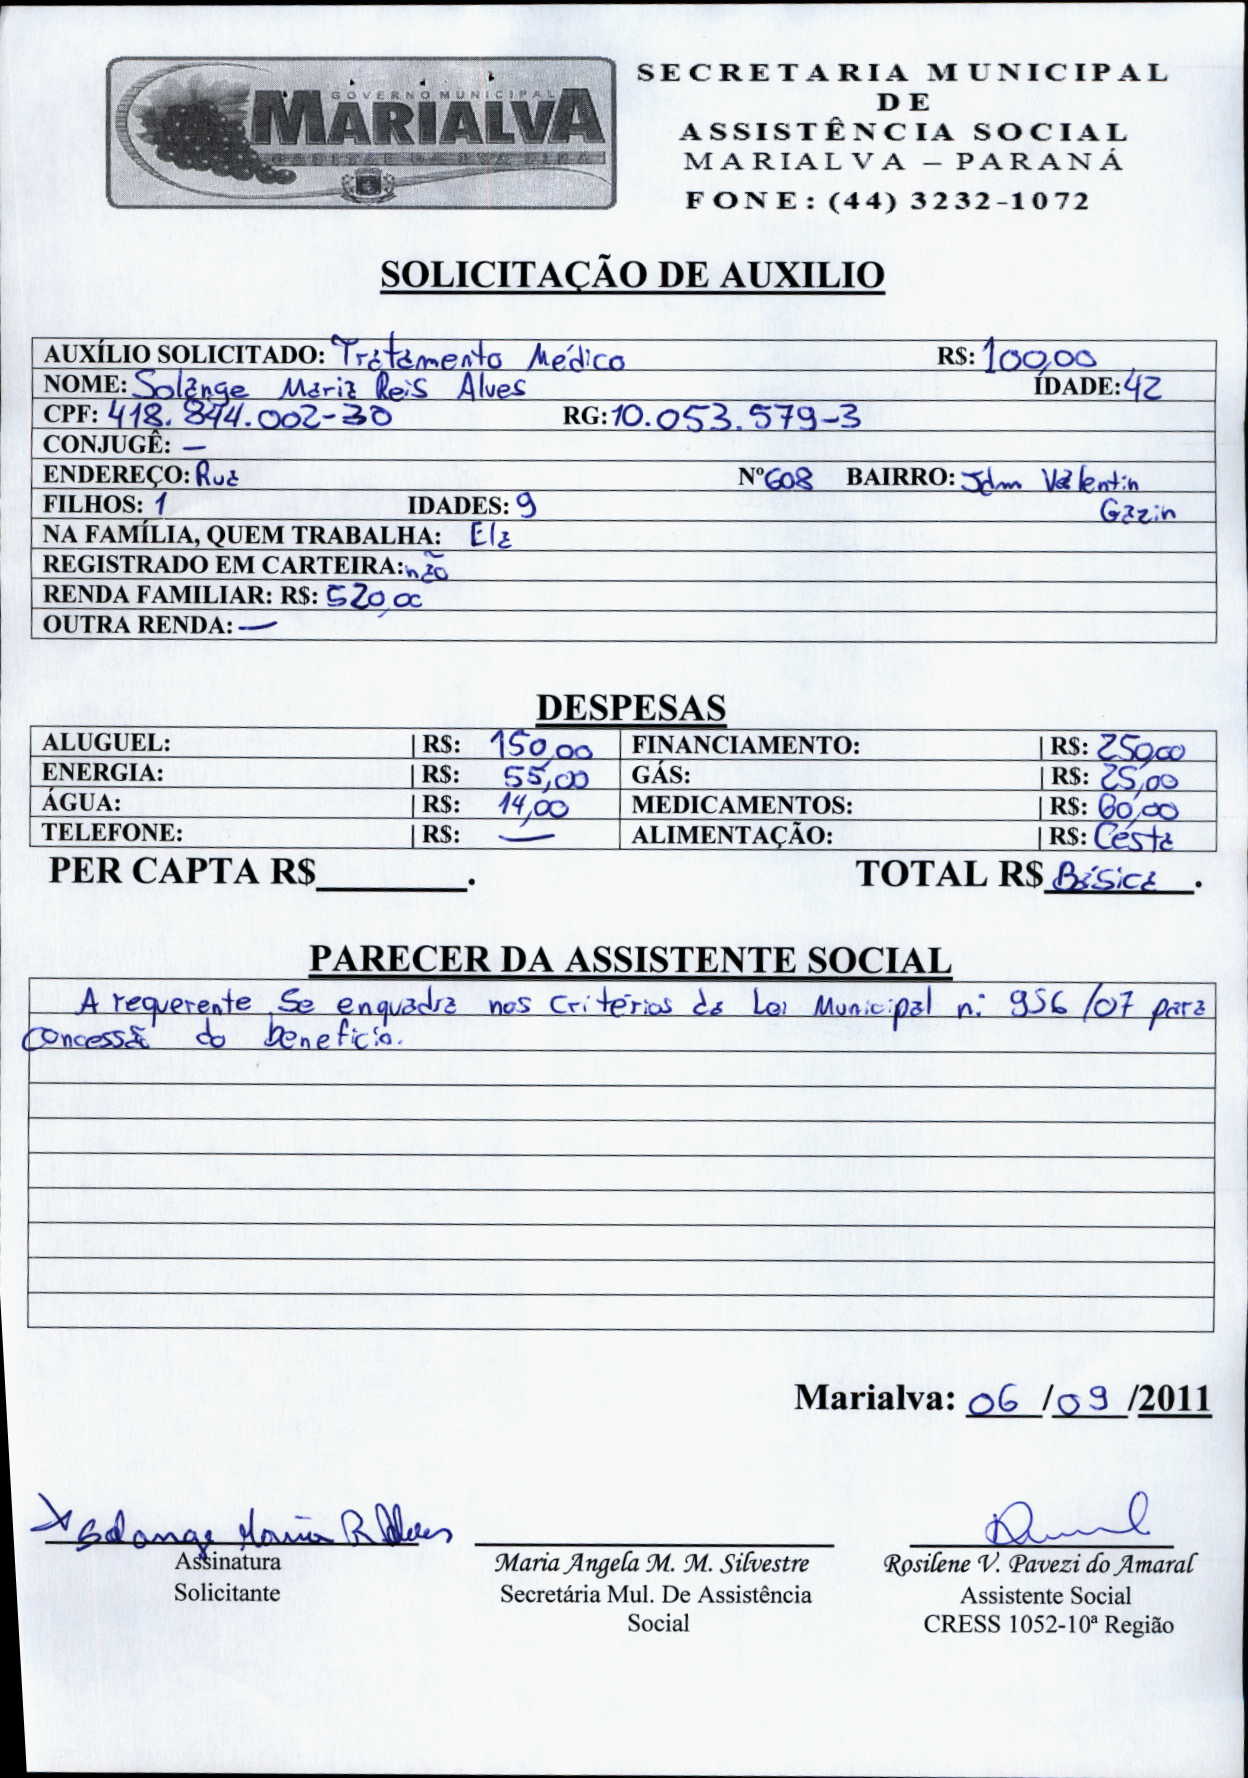 GOVERNO MUNICIPAL
MARIALVA
CAPITAL DA UVA FINA
SECRETARIA MUNICIPAL
DE
ASSISTÊNCIA SOCIAL
MARIALVA – PARANÁ
FONE: (44) 3232-1072
SOLICITAÇÃO DE AUXILIO
AUXÍLIO SOLICITADO: Tratamento Médico R$: 100,00
NOME: Solange Maria Reis Alves IDADE: 42
CPF: 418.844.002-30 RG: 10.053.579-3
CONJUGÊ: —
ENDEREÇO: Rua Nº 608 BAIRRO: Jdm Valentin
Gazin
FILHOS: 1 IDADES: 9
NA FAMÍLIA, QUEM TRABALHA: Ela
REGISTRADO EM CARTEIRA: não
RENDA FAMILIAR: R$: 520,00
OUTRA RENDA: —
DESPESAS
ALUGUEL: | R$: 150,00 FINANCIAMENTO: | R$: 250,00
ENERGIA: | R$: 55,00 GÁS: | R$: 25,00
ÁGUA: | R$: 14,00 MEDICAMENTOS: | R$: 60,00
TELEFONE: | R$: — ALIMENTAÇÃO: | R$: Césta
PER CAPTA R$________. TOTAL R$ Básica.
PARECER DA ASSISTENTE SOCIAL
A requerente se enquadra nos critérios da Lei Municipal n: 956/07 para
concessão do benefício.
Marialva: 06/09/2011
X Solange Maria R Alves
Assinatura
Solicitante
Maria Angela M. M. Silvestre
Secretária Mul. De Assistência
Social
Rosilene V. Pavezi do Amaral
Assistente Social
CRESS 1052-10ª Região